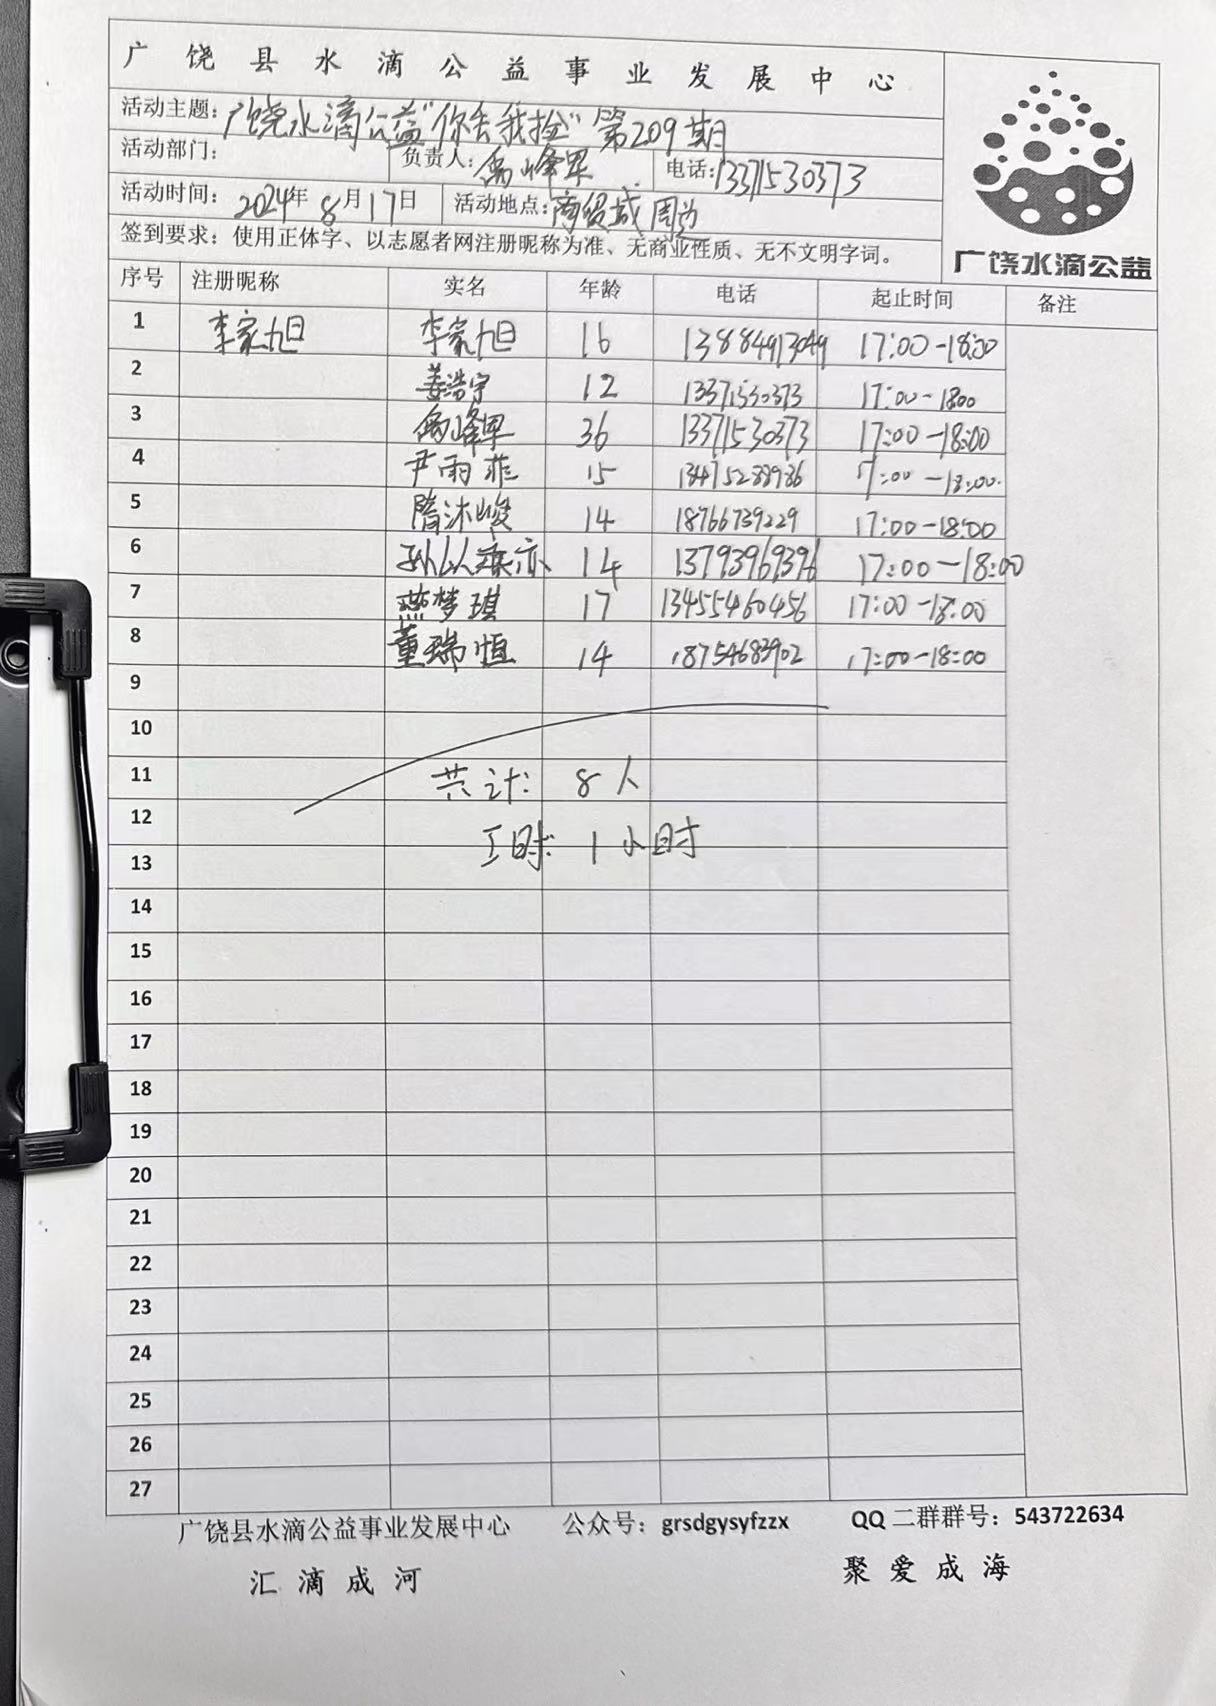 广饶县水滴公益事业发展中心
活动主题：广饶水滴公益"你丢我捡"第209期
活动部门： 负责人： 电话：13371530373
活动时间：2024年8月17日 活动地点：商贸城周边
签到要求：使用正体字、以志愿者网注册昵称为准、无商业性质、无不文明字词。
广饶水滴公益
序号 注册昵称 实名 年龄 电话 起止时间 备注
1 李家旭 李家旭 16 13884913049 17:00-18:00
2 姜浩宇 12 13371530373 17:00-1800
3 36 13371530373 17:00-18:00
4 尹雨菲 15 13475289986 17:00-18:00.
5 隋沐峻 14 18766739229 17:00-18:00
6 14 13793969396 17:00-18:00
7 燕梦琪 17 13455460456 17:00-18:00
8 董瑞恒 14 18754683902 17:00-18:00
9
10
11 共计：8人
12
工时：1小时
13
14
15
16
17
18
19
20
21
22
23
24
25
26
27
广饶县水滴公益事业发展中心 公众号：grsdgysyfzzx QQ二群群号：543722634
汇滴成河 聚爱成海